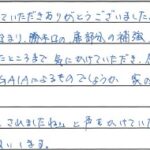 ていただきありがとうございました。
まり、勝手口の扉部分の補強
たところまで気にかけていただき、
GAIAによるものでしょうか 家の
されましたねぇと声をかけていた
いします。